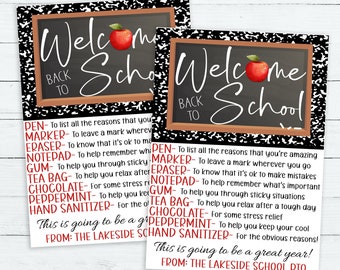 Welcome
BACK TO
School
PEN- To list all the reasons that you're amazing
MARKER- To leave a mark wherever you go
ERASER- To know that it's ok to make mistakes
NOTEPAD- To help remember what's important
GUM- To help you through sticky situations
TEA BAG- To help you relax after a tough day
CHOCOLATE- For some stress relief
PEPPERMINT- To help you keep your cool
HAND SANITIZER- For the obvious reasons!
This is going to be a great year!
FROM: THE LAKESIDE SCHOOL
Welcome
BACK TO
School
PEN- To list all the reasons that you're amazing
MARKER- To leave a mark wherever you go
ERASER- To know that it's ok to make mistakes
NOTEPAD- To help remember what's important
GUM- To help you through sticky situations
TEA BAG- To help you relax after a tough day
CHOCOLATE- For some stress relief
PEPPERMINT- To help you keep your cool
HAND SANITIZER- For the obvious reasons!
This is going to be a great year!
FROM: THE LAKESIDE SCHOOL PTO